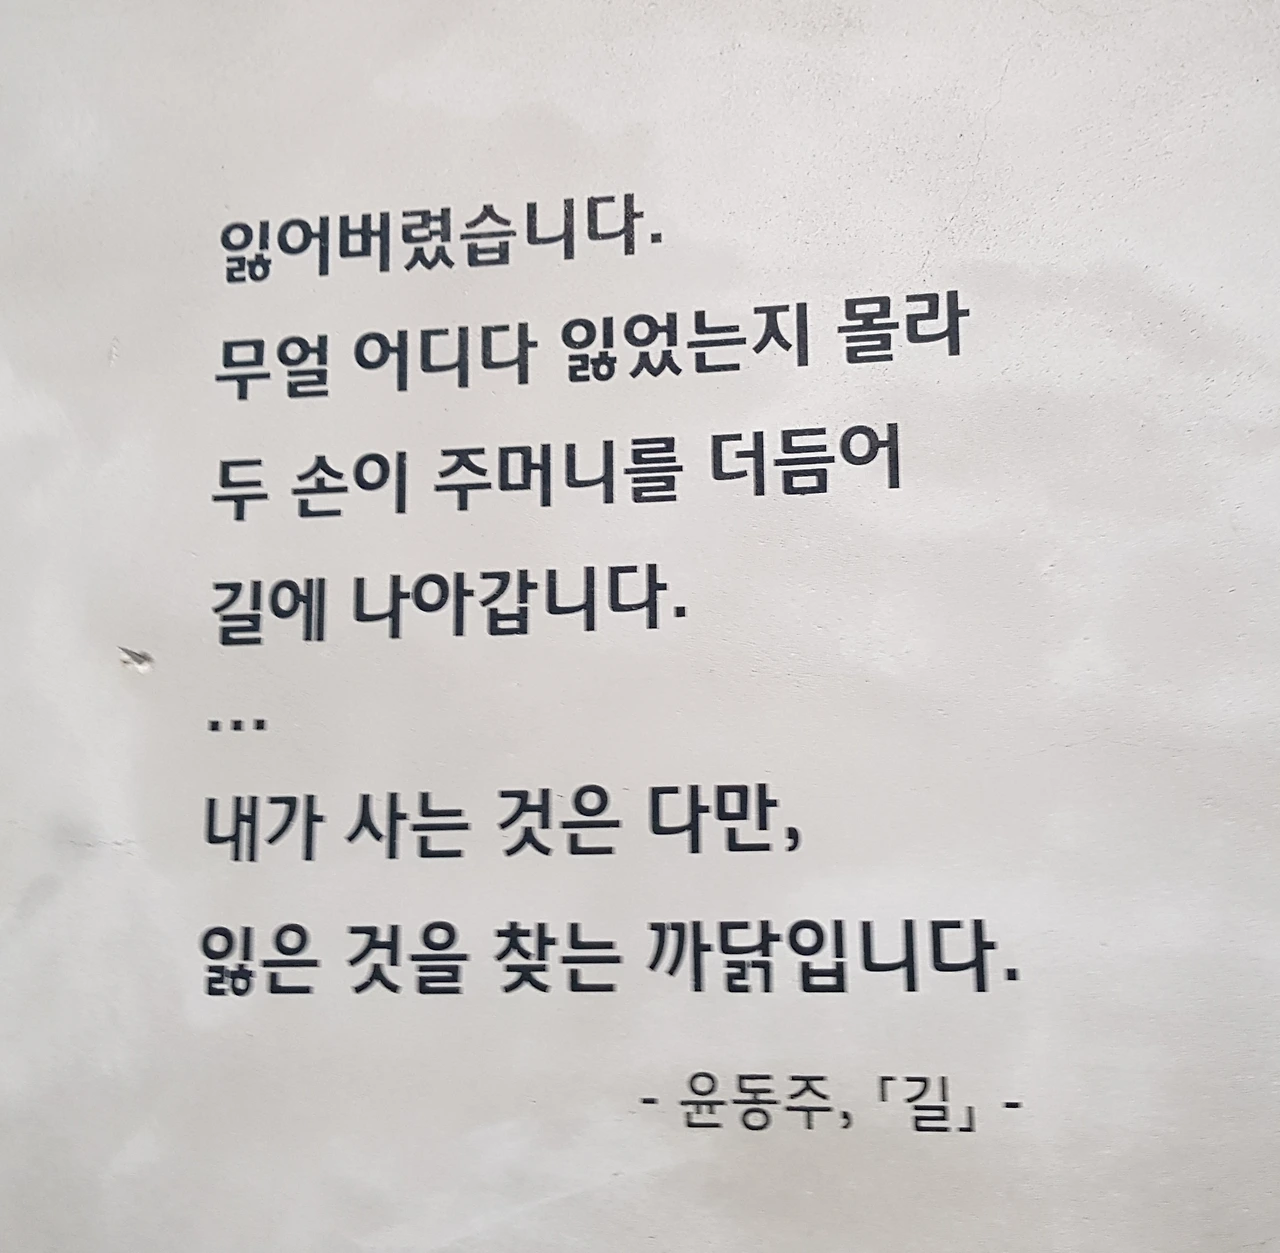 잃어버렸습니다.
무얼 어디다 잃었는지 몰라
두 손이 주머니를 더듬어
길에 나아갑니다.
...
내가 사는 것은 다만,
잃은 것을 찾는 까닭입니다.
- 윤동주, 「길」 -